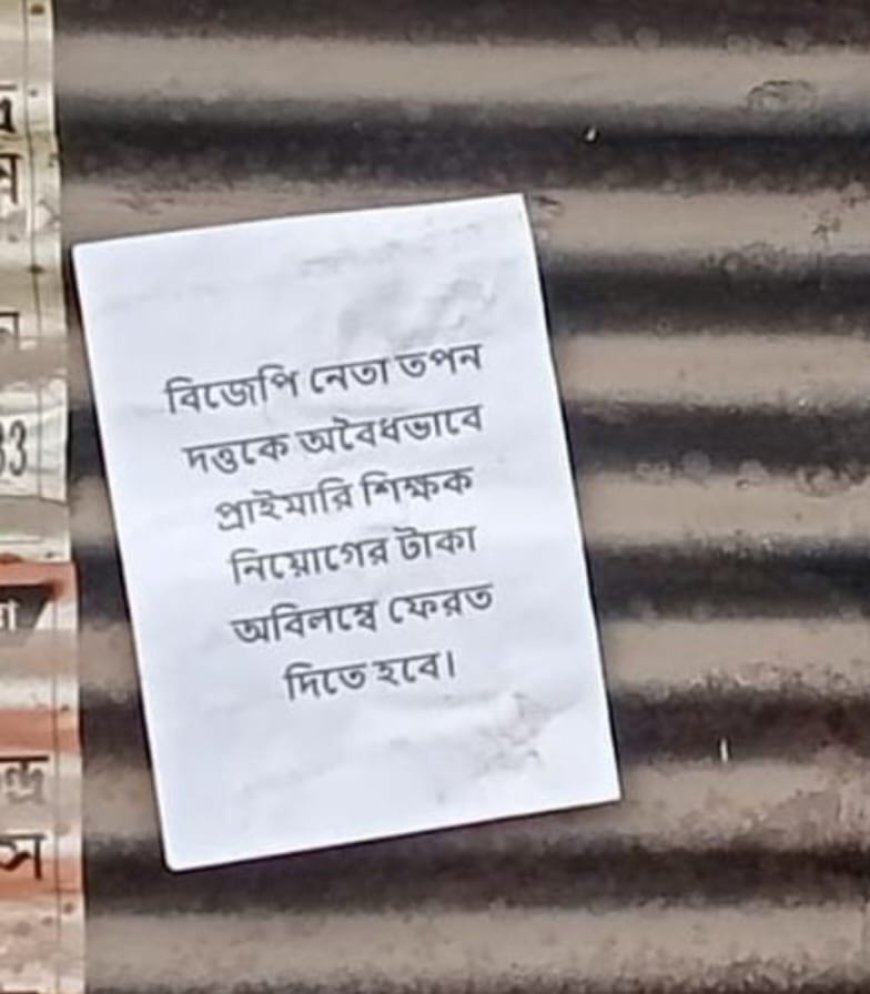 বিজেপি নেতা তপন
দত্তকে অবৈধভাবে
প্রাইমারি শিক্ষক
নিয়োগের টাকা
অবিলম্বে ফেরত
দিতে হবে।
33